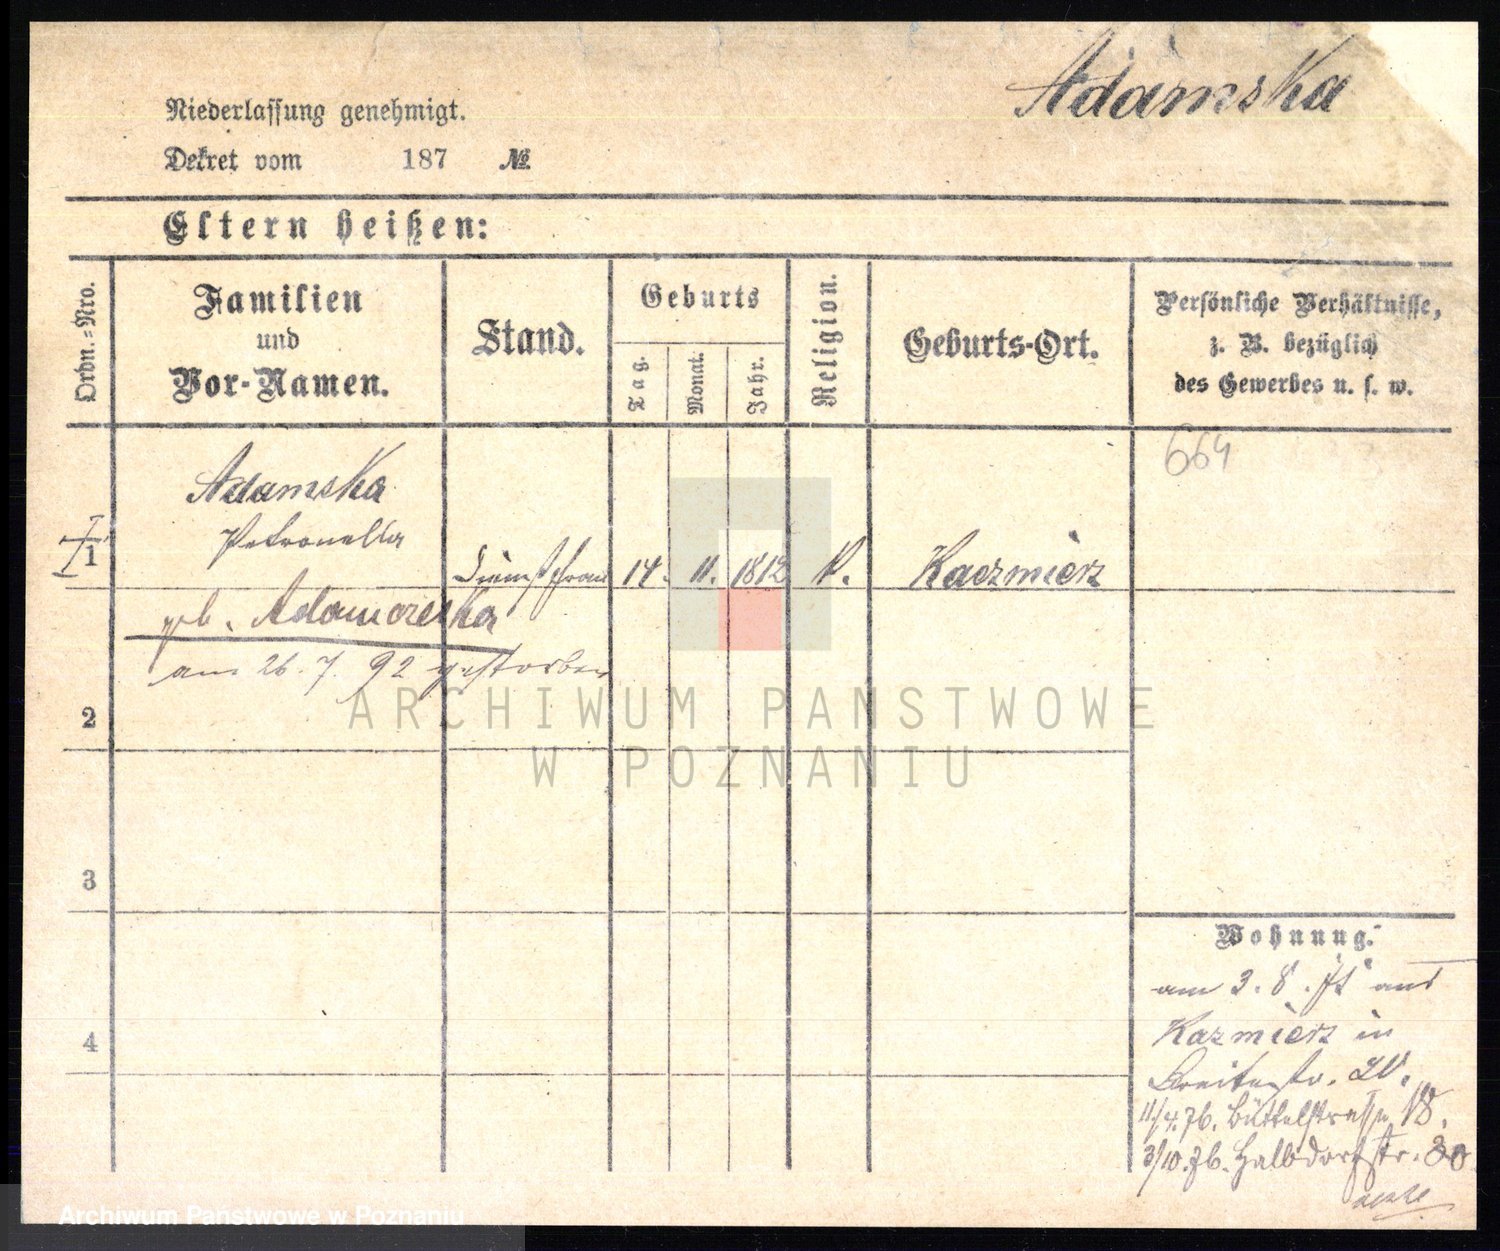 Adamska
Niederlassung genehmigt.
Dekret vom 187 №
Eltern heißen:
Ordn.=Nro.
Familien
und
Vor-Namen.
Stand.
Geburts
Tag.
Monat.
Jahr.
Religion.
Geburts-Ort.
Persönliche Verhältnisse,
z. B. bezüglich
des Gewerbes u. s. w.
664
Adamska
Petronella
1 Dienstfrau 14. 11. 1812 K. Kaczmierz
geb. Adamczeska
am 26. 7. 92 gestorben
2
3
4
Wohnung.
am 3. 8. 75 aus
Kazmierz in
Breitestr. 20.
11/4. 76. Büttelstrasse 18.
3/10. 76. Halbdorfstr.
ARCHIWUM PAŃSTWOWE
W POZNANIU
Archiwum Państwowe w Poznaniu